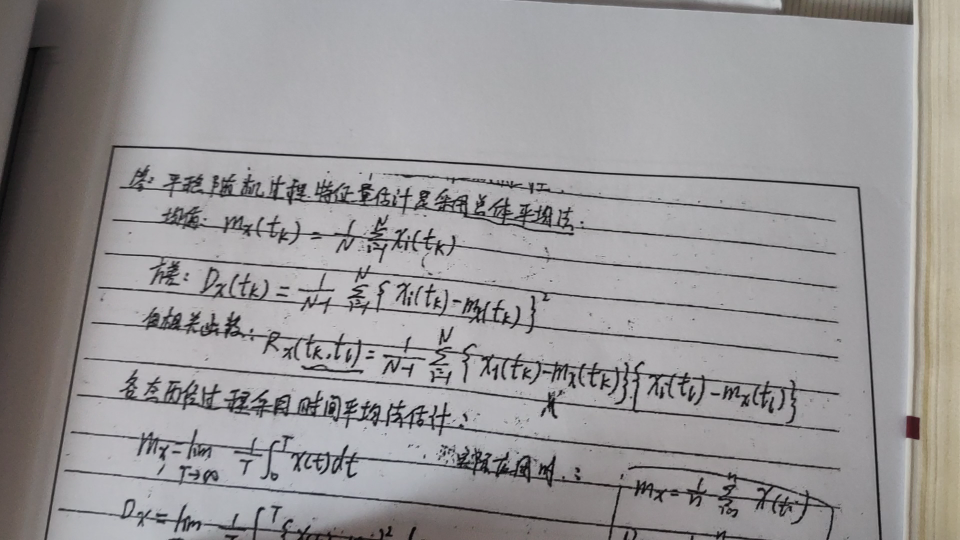 答：平稳随机过程特征量估计是采用总体平均法：
均值：m_x(t_k) = 1/N Σ_{i=1}^{N} x_i(t_k)
方差：D_x(t_k) = 1/(N-1) Σ_{i=1}^{N} { x_i(t_k) - m_x(t_k) }²
自相关函数：R_x(t_k, t_l) = 1/(N-1) Σ_{i=1}^{N} { x_i(t_k) - m_x(t_k) }{ x_i(t_l) - m_x(t_l) }
各态历经过程采用时间平均法估计：
m_x = lim_{T→∞} 1/T ∫_0^T x(t)dt 实际应用时：
m_x = 1/n Σ_{i=1}^{n} x(t_i)
D_x = lim 1/T ∫^T